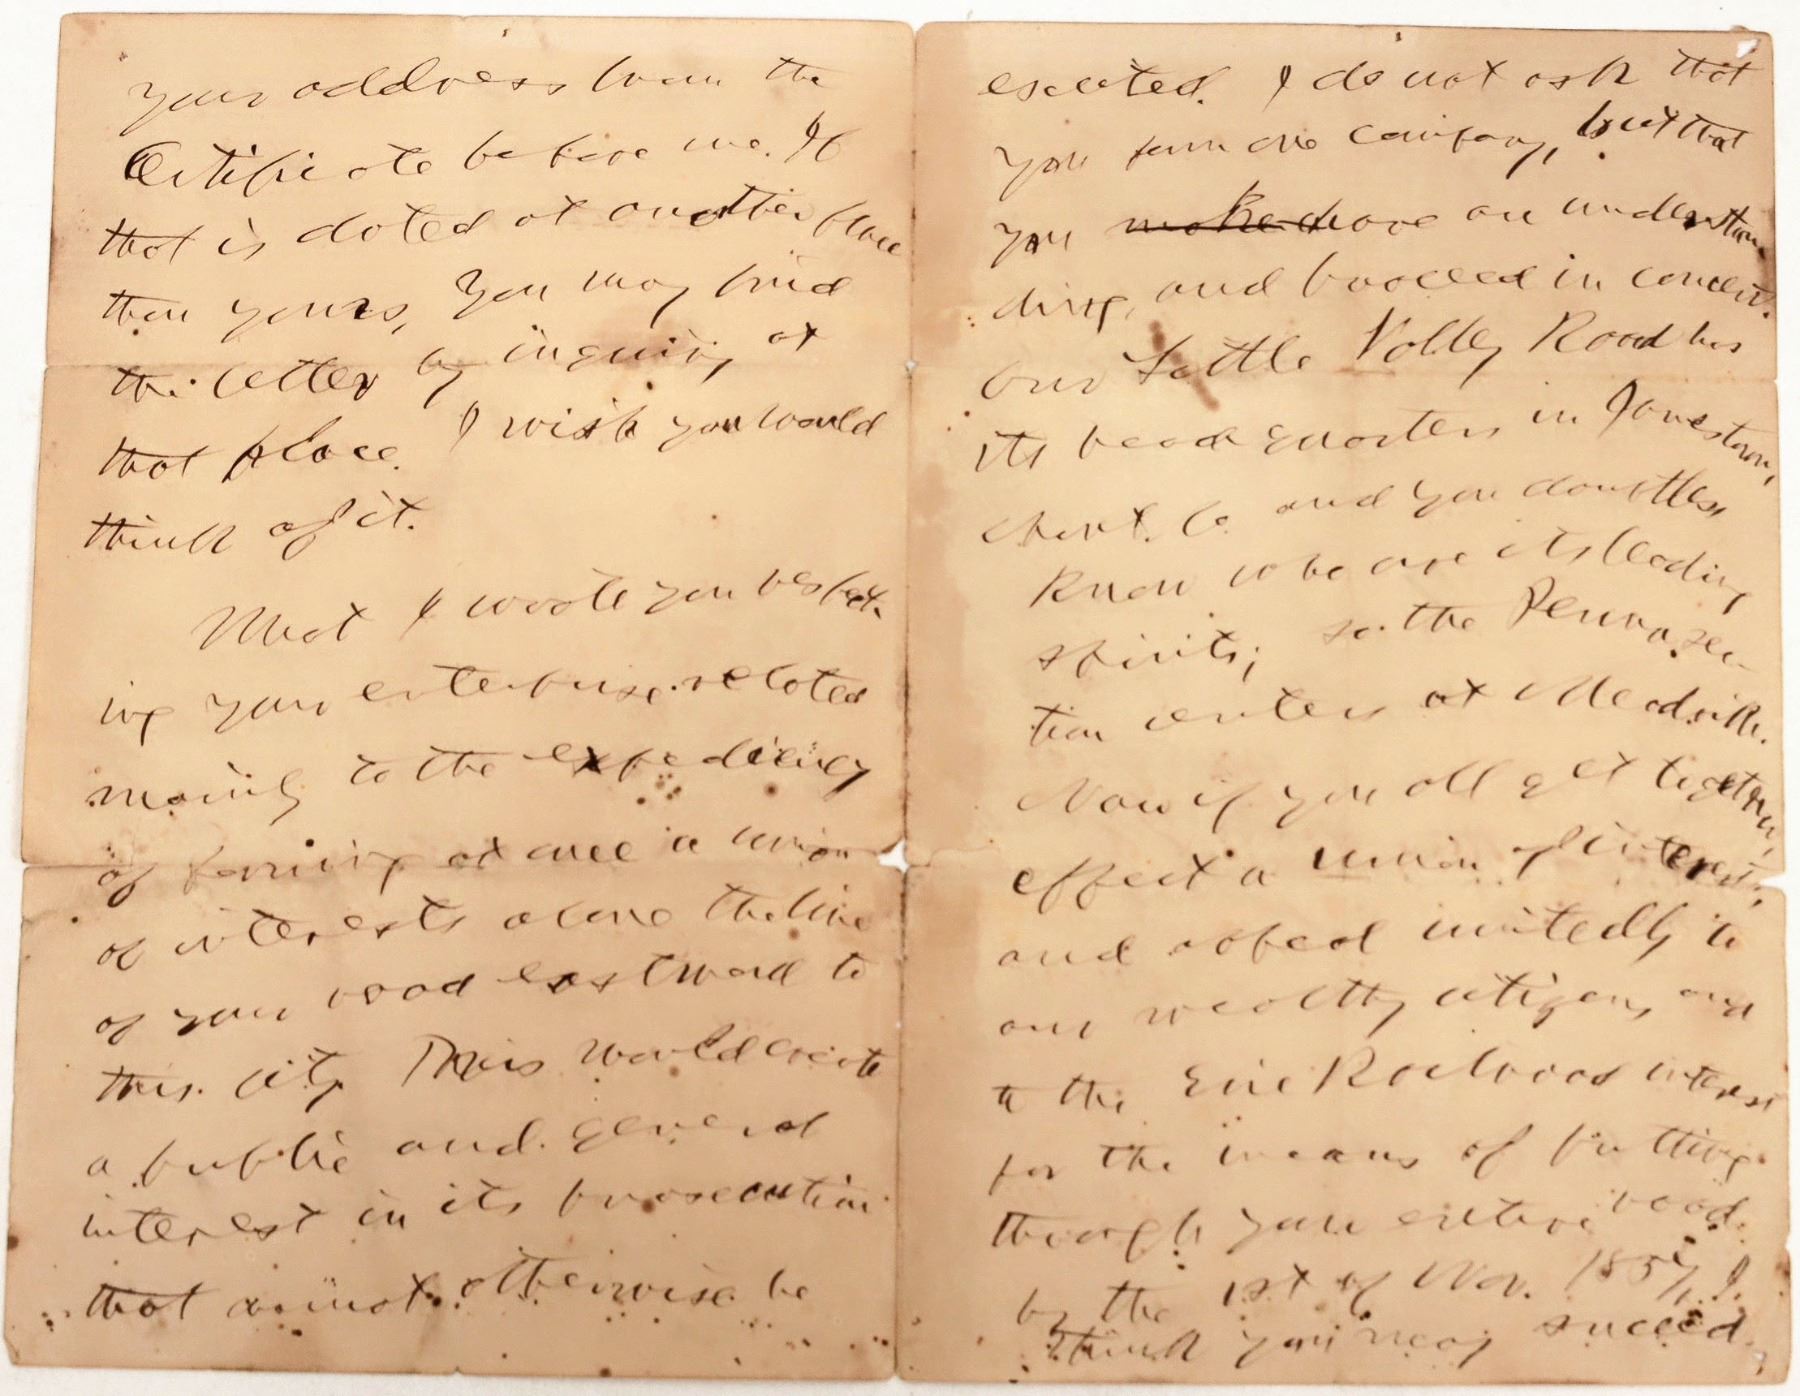 your address from the
Certificate before me. If
that is dated at another place
than yours, you may find
the letter by inquiring at
that place. I wish you would
think of it.
What I wrote you respect-
ing your enterprise related
mainly to the expediency
of forming at once a union
of interests along the line
of your road eastward to
this city. This would create
a public and general
interest in its prosecution
that cannot otherwise be
excited. I do not ask that
you form one company, but that
you make have an understan
ding, and proceed in concert.
Our Little Valley Road has
its head quarters in Jamestown,
Chaut. Co. and you doubtless
know who are its leading
spirits; so the Penna. sec-
tion centers at Meadville.
Now if you all get together,
effect a union of interests,
and appeal unitedly to
our wealthy citizens and
to the Erie Railroad interest
for the means of putting
through your entire road
by the 1st of Nov. 1857, I
think you may succeed.